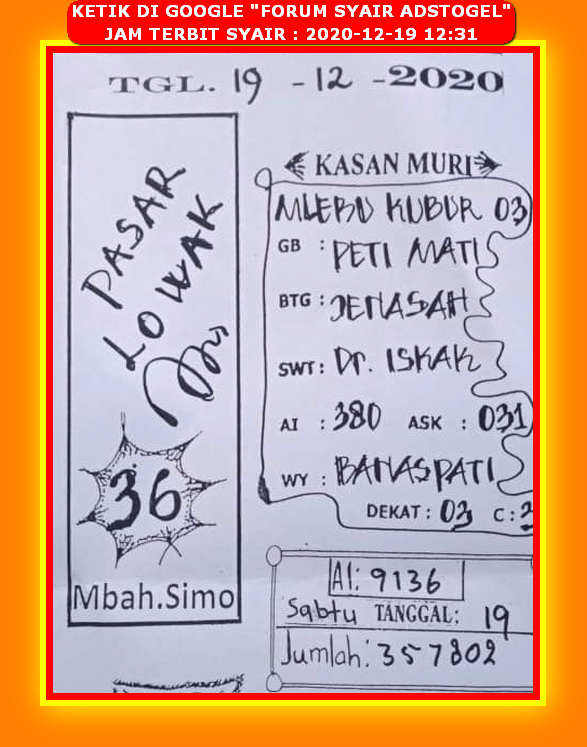 KETIK DI GOOGLE "FORUM SYAIR ADSTOGEL"
JAM TERBIT SYAIR : 2020-12-19 12:31
TGL. 19 - 12 - 2020
PASAR
LOWAK
36
Mbah.Simo
KASAN MURI
MLEBU KUBUR 03
GB : PETI MATI
BTG : JENASAH
SWT : Dr. ISKAK
AI : 380 ASK : 031
WY : BANASPATI
DEKAT : 03 C : 2
AI: 9136
Sabtu TANGGAL: 19
Jumlah: 357802